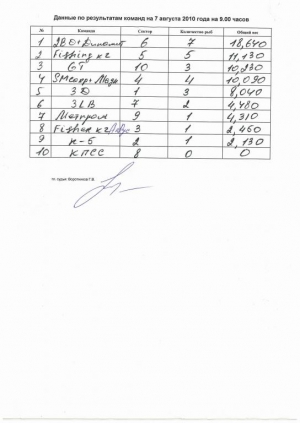 Данные по результатам команд на 7 августа 2010 года на 9.00 часов
№ Команда Сектор Количество рыб Общий вес
1 6 7 18,640
2 Fishing кг 5 5 11,130
3 GT 10 3 10,230
4 4 4 10,090
5 3D 1 3 8,040
6 3LB 7 2 4,480
7 Метрром 9 1 4,310
8 3 1 2,460
9 К-5 2 1 2,130
10 КПСС 8 0 0
Гл. судья Воротников Г.В.